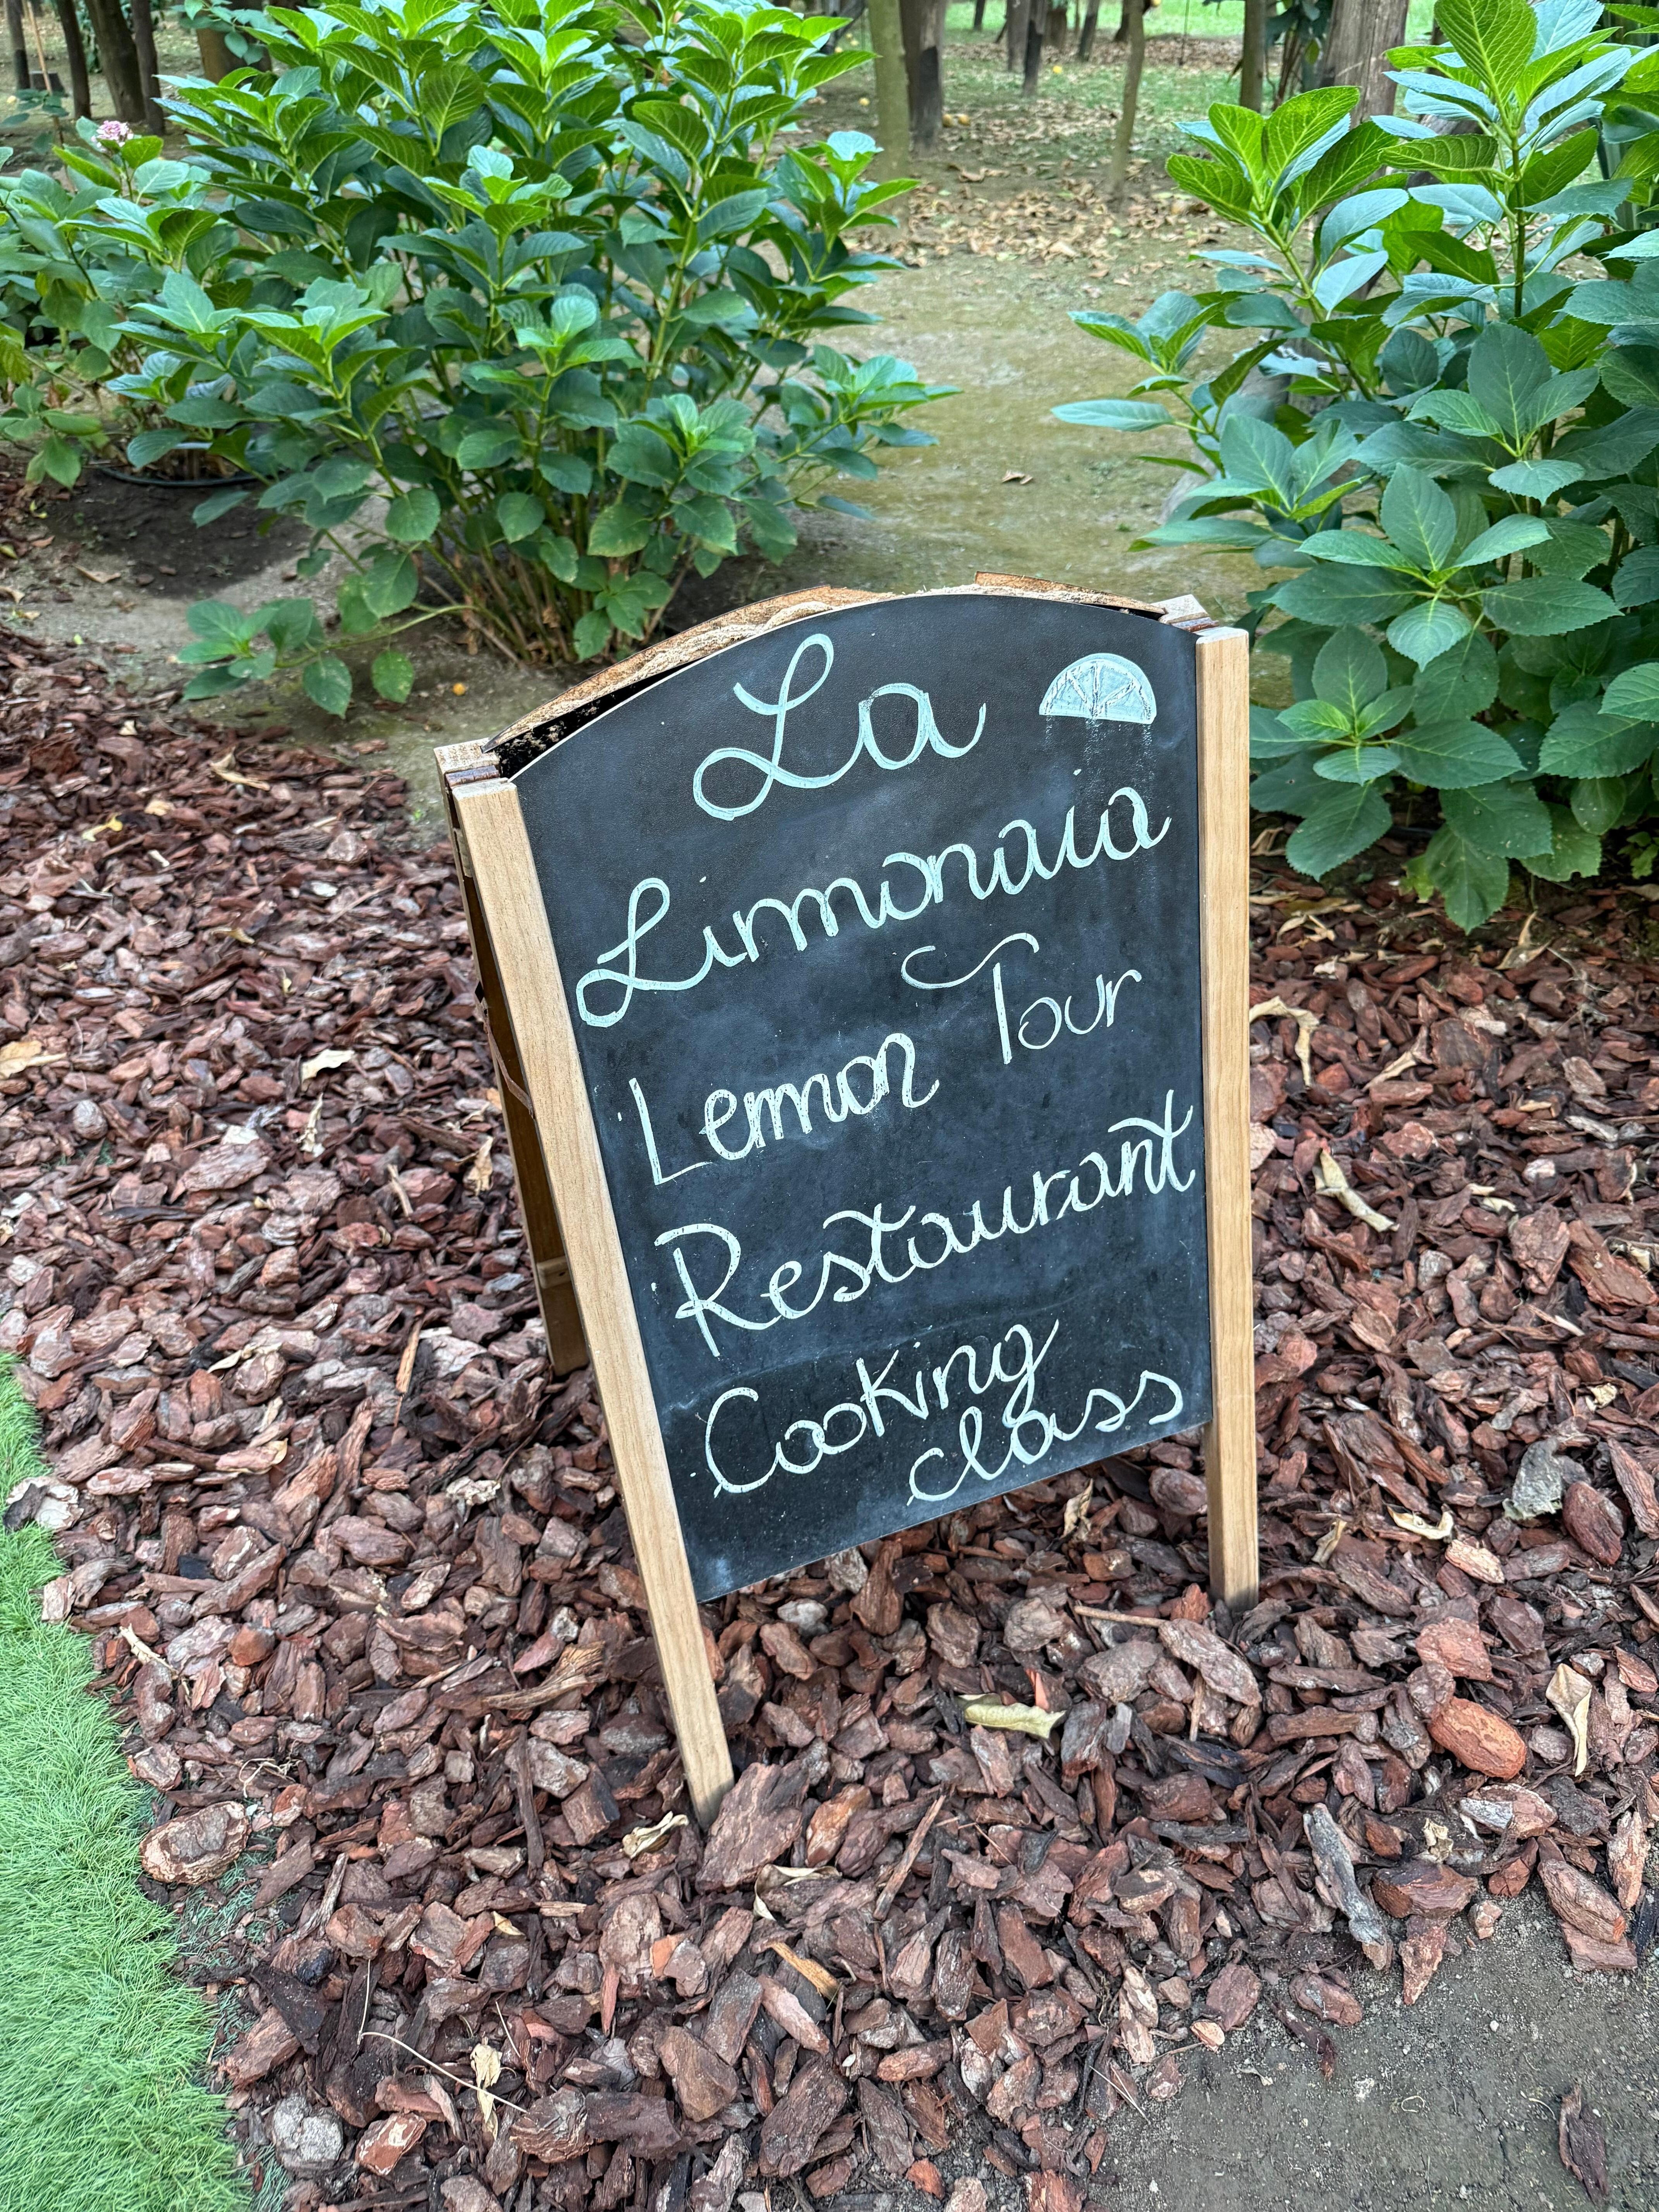 La
Limonaia
Lemon Tour
Restaurant
Cooking
class